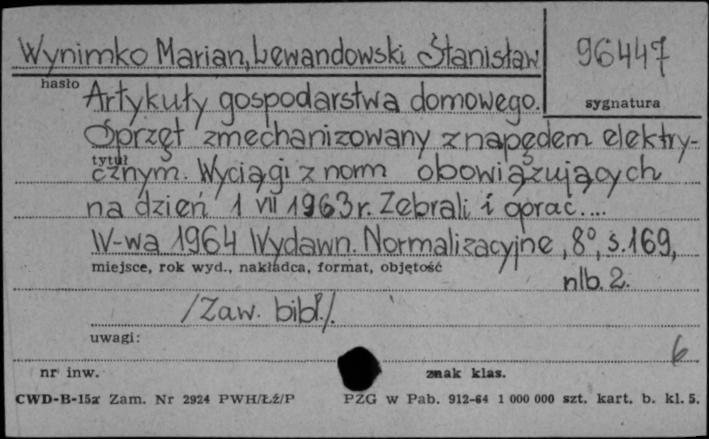 Wynimko Marian, Lewandowski Stanisław 96447
hasło
Artykuły gospodarstwa domowego. sygnatura
Sprzęt zmechanizowany z napędem elektry-
tytuł
cznym. Wyciągi z norm obowiązujących
na dzień 1 VII 1963 r. Zebrali i oprac....
W-wa 1964 Wydawn. Normalizacyjne, 8°, s. 169,
miejsce, rok wyd., nakładca, format, objętość
nlb. 2.
/Zaw. bibl./.
uwagi:
6
nr inw. znak klas.
CWD-B-15a Zam. Nr 2924 PWH/Łź/P PZG w Pab. 912-64 1 000 000 szt. kart. b. kl. 5.